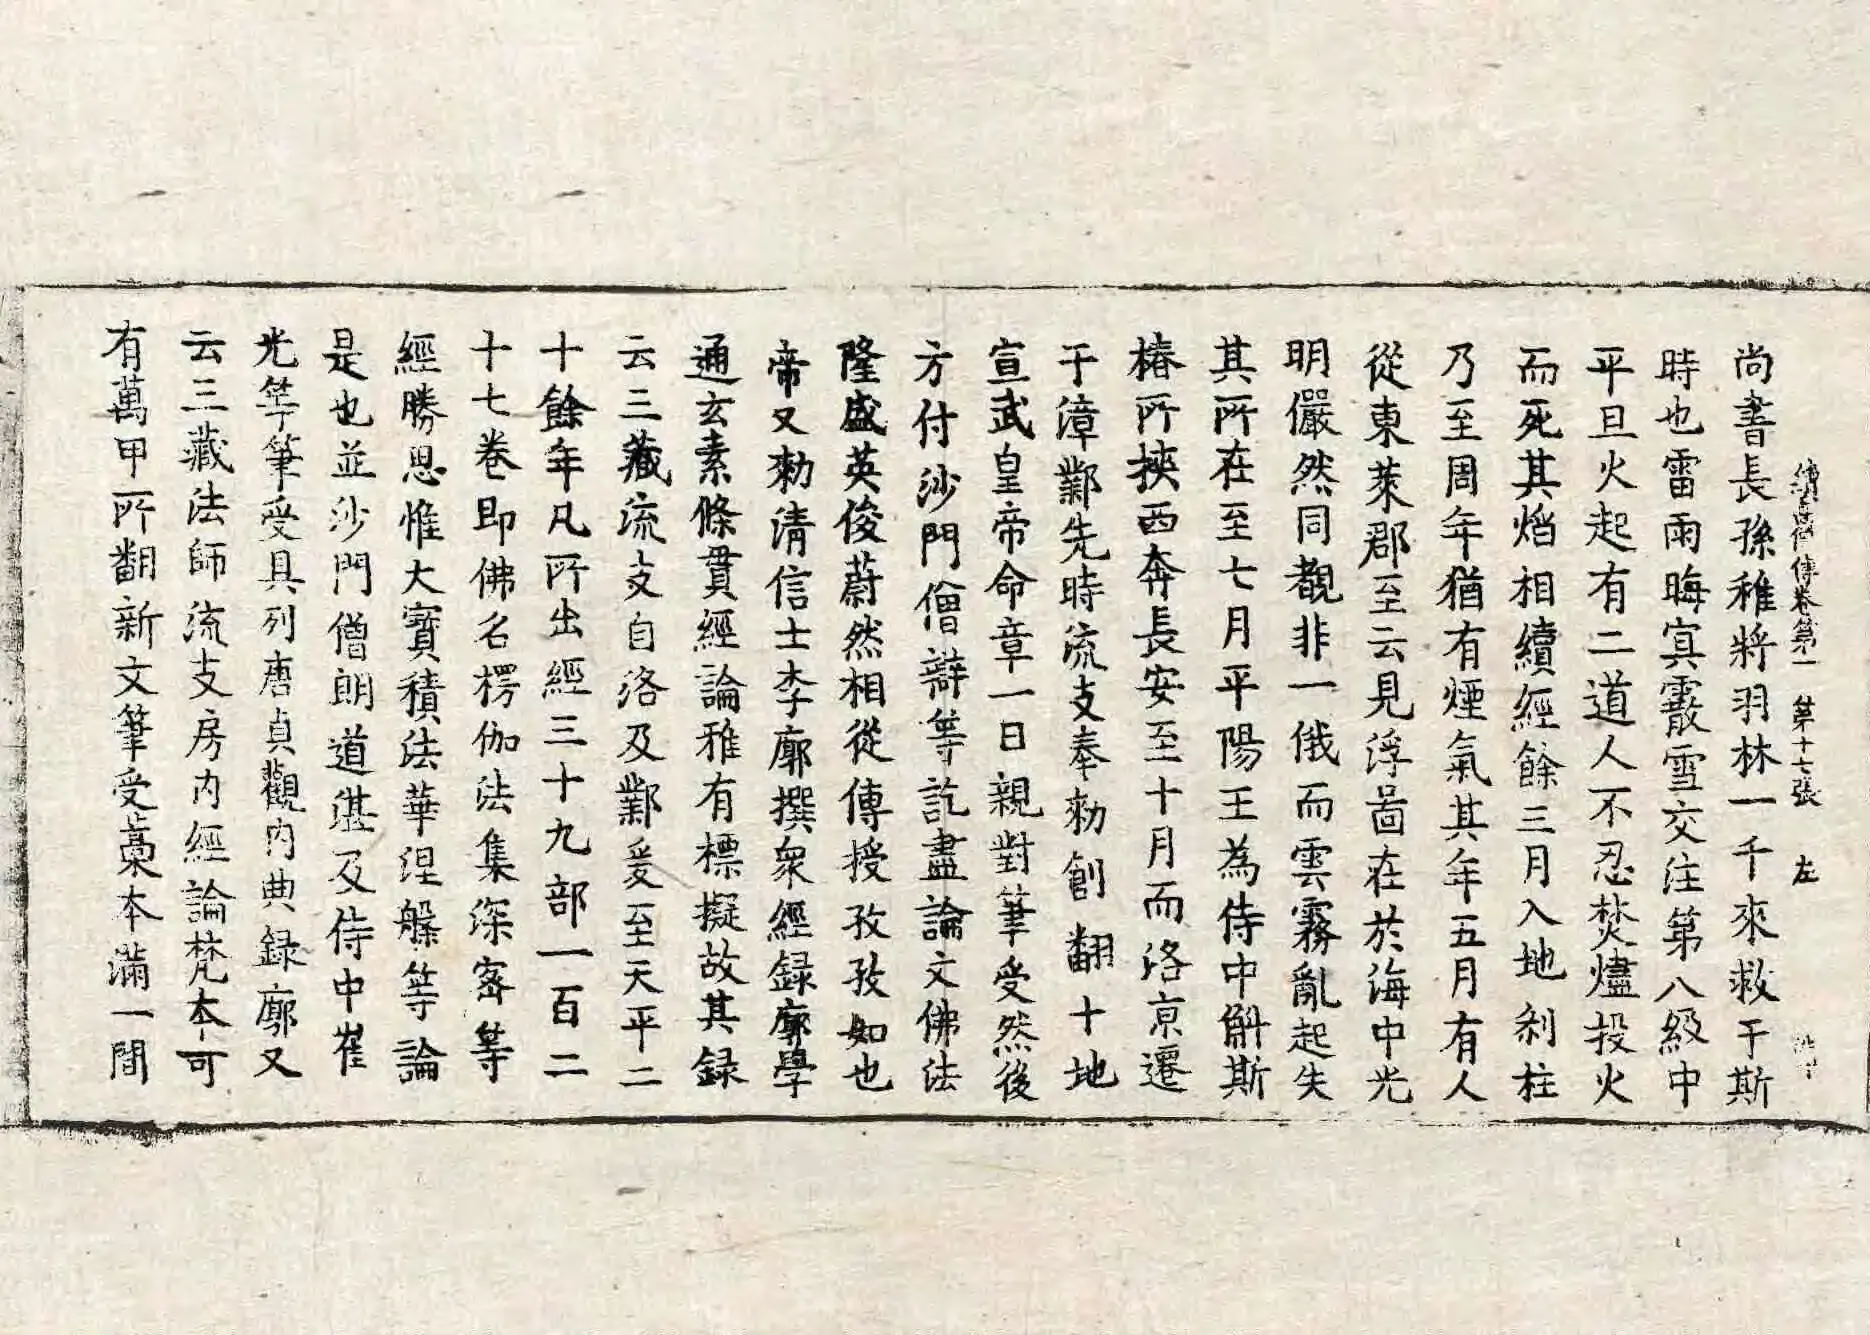 續高僧傳卷第一 第十七張 左
尚書長孫稚將羽林一千來救于斯
時也雷雨晦冥霰雪交注第八級中
平旦火起有二道人不忍焚燼投火
而死其焰相續經餘三月入地剎柱
乃至周年猶有煙氣其年五月有人
從東萊郡至云見浮啚在於海中光
明儼然同覩非一俄而雲霧亂起失
其所在至七月平陽王為侍中斛斯
椿所挾西奔長安至十月而洛京遷
于漳鄴先時流支奉勑創翻十地
宣武皇帝命章一日親對筆受然後
方付沙門僧辯等訖盡論文佛法
隆盛英俊蔚然相從傳授孜孜如也
帝又勑清信士李廓撰衆經録廓學
通玄素條貫經論雅有標擬故其録
云三藏流支自洛及鄴爰至天平二
十餘年凡所出經三十九部一百二
十七卷即佛名楞伽法集深密等
經勝思惟大寶積法華涅槃等論
是也並沙門僧朗道湛及侍中崔
光等筆受具列唐貞觀内典録廓又
云三藏法師流支房内經論梵本可
有萬甲所翻新文筆受藁本滿一間